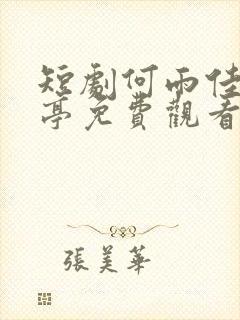 短劇何雨佳
亭免費觀看
張美華